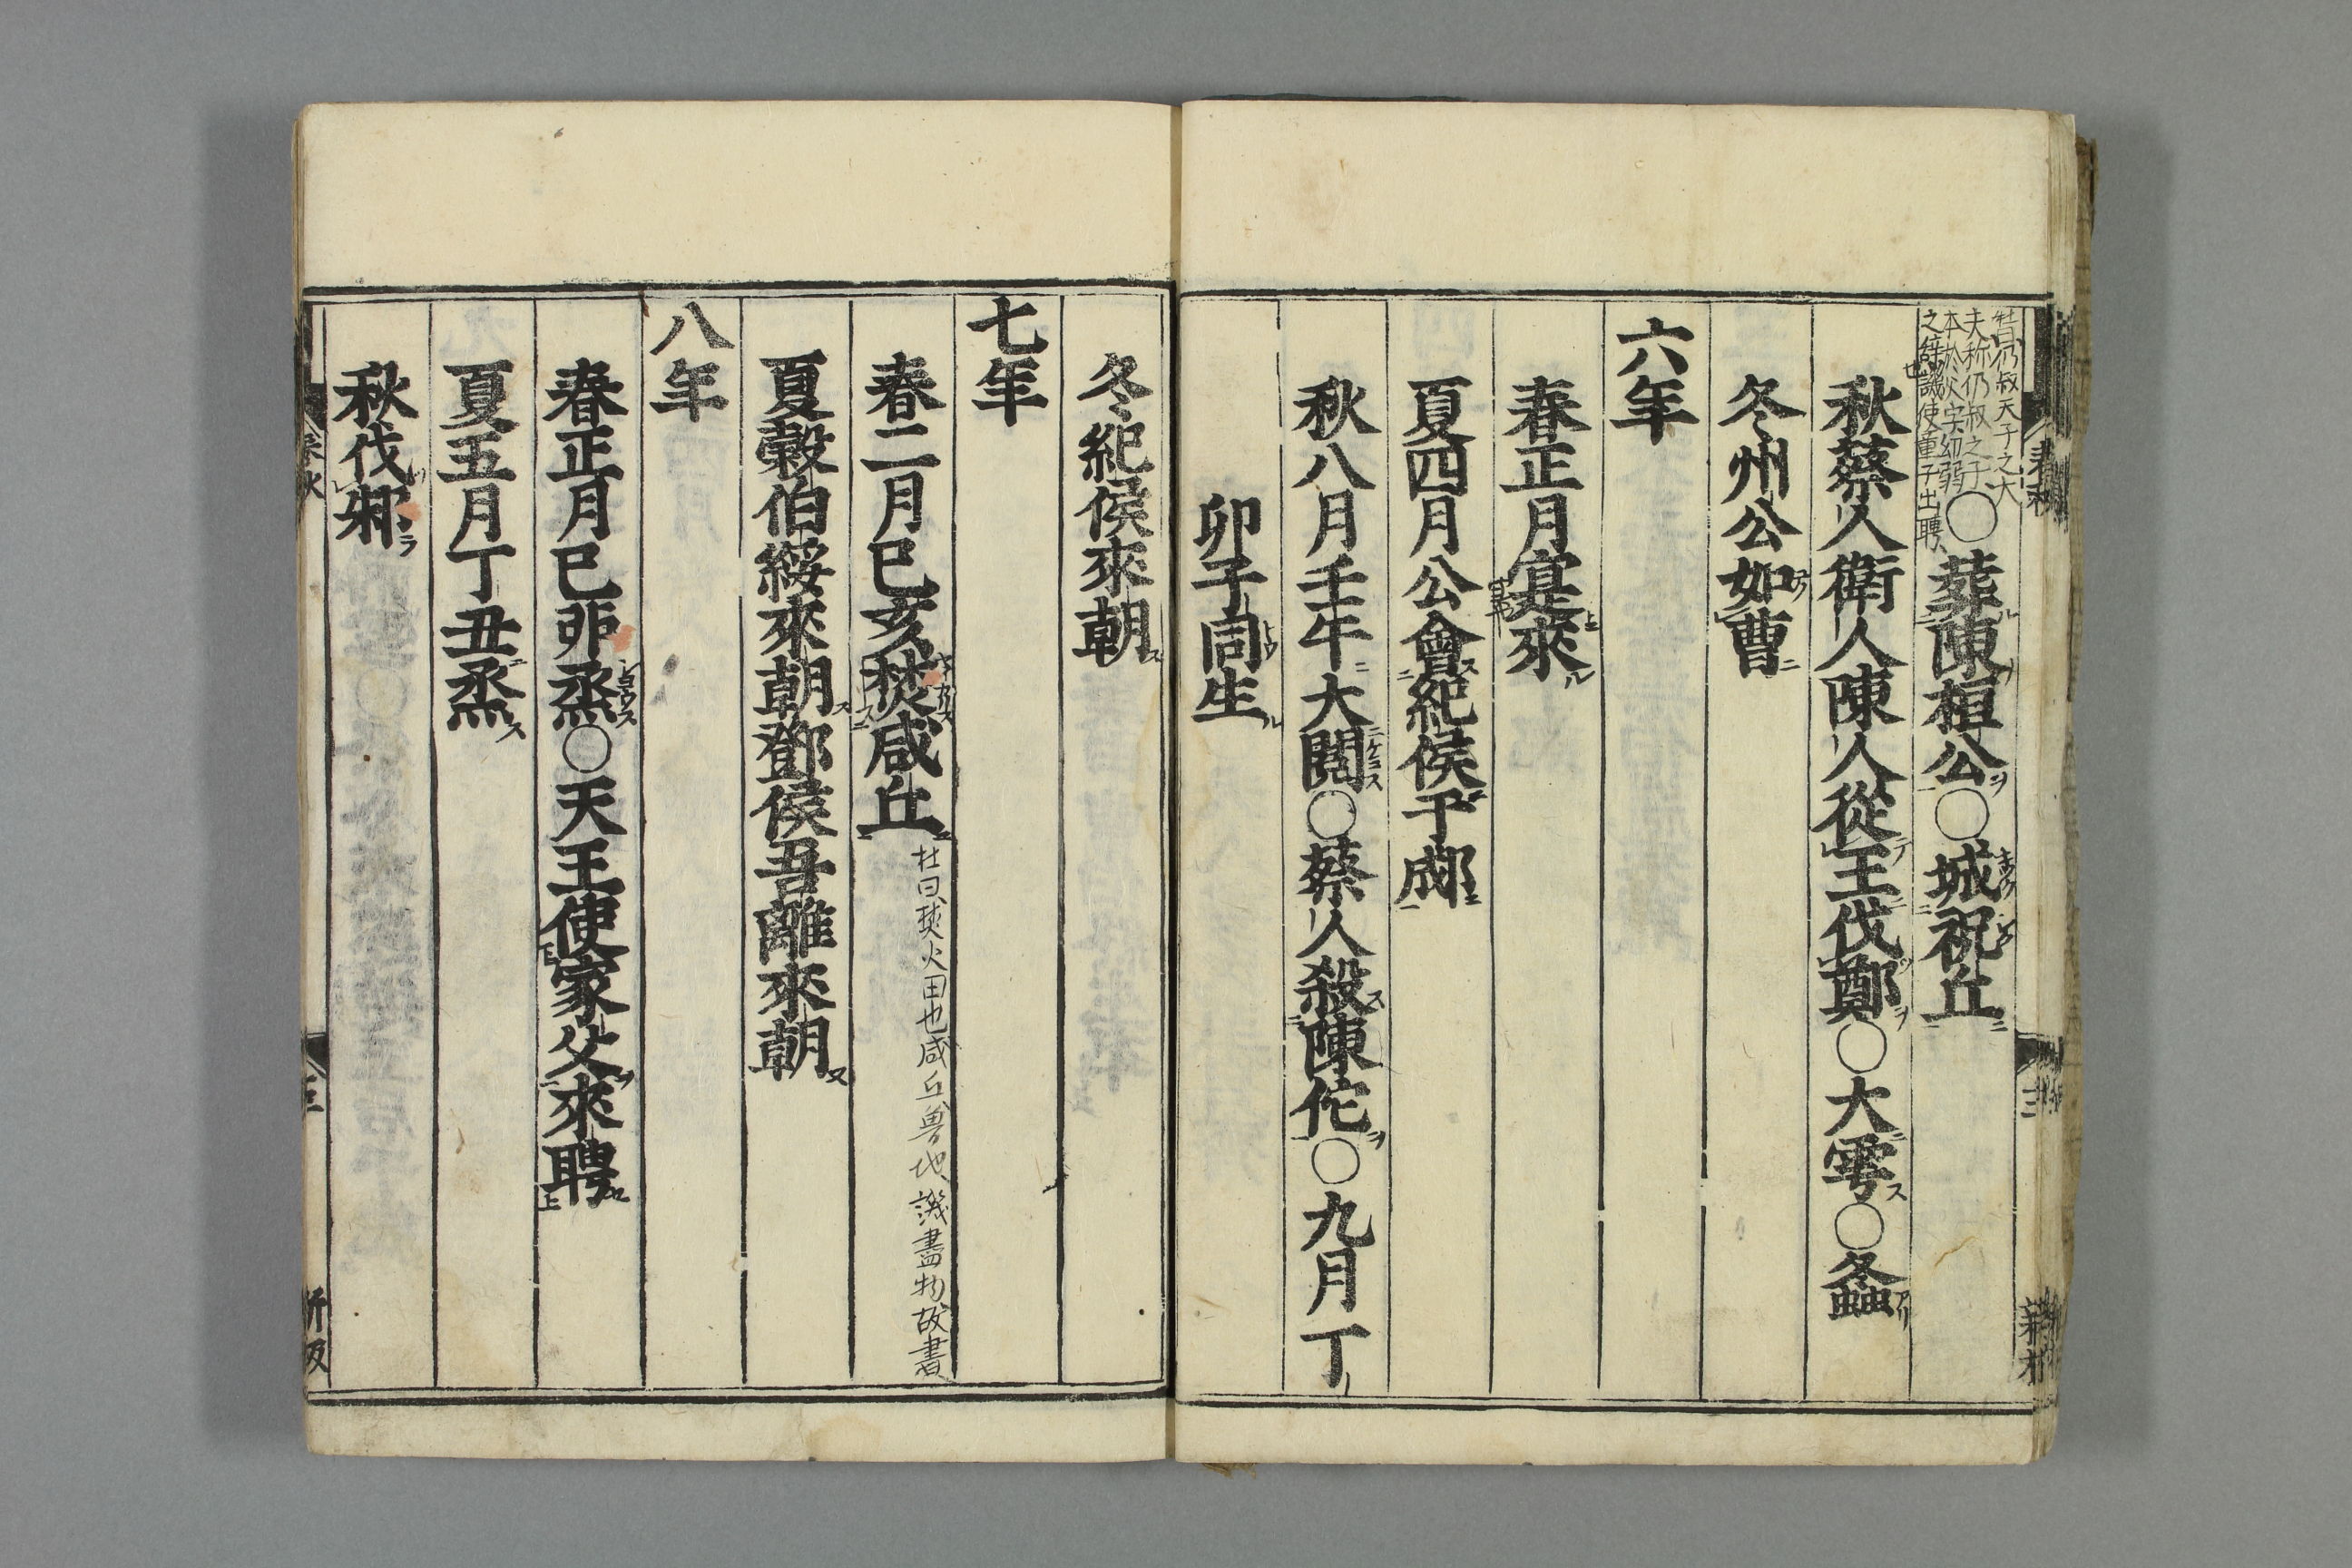 杜曰仍叔天子之大
夫称仍叔之子
本於父字幼弱
之辞也譏使童子出聘
○葬陳桓公○城祝丘
秋蔡人衛人陳人從王伐鄭○大雩○螽
冬州公如曹
六年
春正月寔來
夏四月公會紀侯于郕
秋八月壬午大閲○蔡人殺陳佗○九月丁
卯子同生
冬紀侯來朝
七年
春二月己亥焚咸丘
杜曰焚火田也咸丘魯地譏盡物故書
夏穀伯綏來朝鄧侯吾離來朝
八年
春正月己卯烝○天王使家父來聘
夏五月丁丑烝
秋伐邾
春秋
三
新板